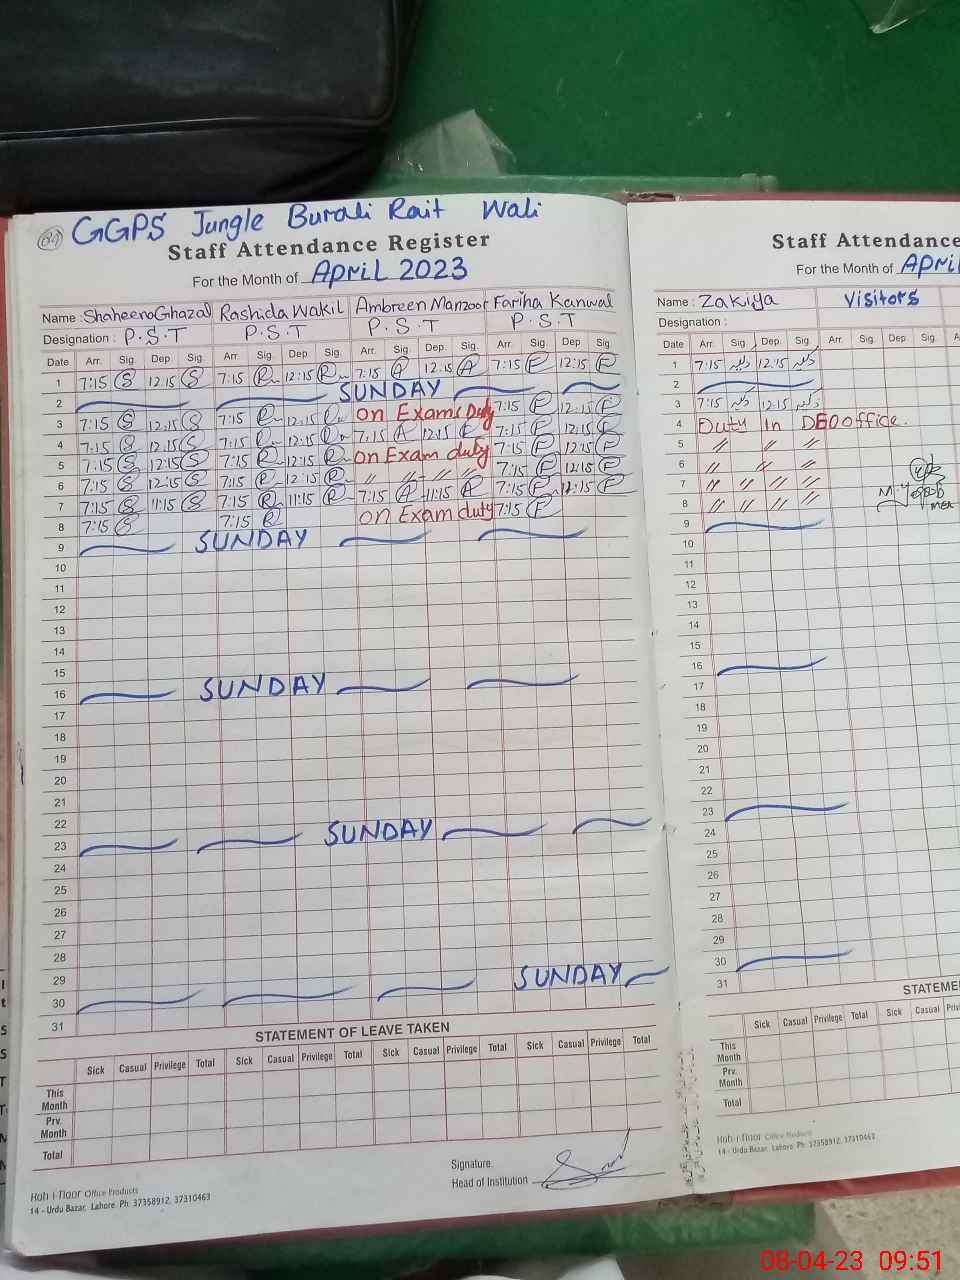 84 GGPS Jungle Burali Rait Wali
Staff Attendance Register
For the Month of April 2023
Name : Shaheena Ghazal Rashida Wakil Ambreen Manzoor Fariha Kanwal
Designation : P.S.T P.S.T P.S.T P.S.T
Date Arr. Sig. Dep. Sig. Arr. Sig. Dep. Sig. Arr. Sig. Dep. Sig. Arr. Sig. Dep. Sig.
1 7:15 S 12:15 S 7:15 R 12:15 R 7:15 A 12:15 A 7:15 F 12:15 F
2 SUNDAY
3 7:15 S 12:15 S 7:15 R 12:15 R On Exams Duty 7:15 F 12:15 F
4 7:15 S 12:15 S 7:15 R 12:15 R 7:15 A 12:15 A 7:15 F 12:15 F
5 7:15 S 12:15 S 7:15 R 12:15 R On Exam duty 7:15 F 12:15 F
6 7:15 S 12:15 S 7:15 R 12:15 R 〃 〃 〃 〃 7:15 F 12:15 F
7 7:15 S 11:15 S 7:15 R 11:15 R 7:15 A 11:15 A 7:15 F 11:15 F
8 7:15 S 7:15 R On Exam duty 7:15 F
9 SUNDAY
10
11
12
13
14
15
16 SUNDAY
17
18
19
20
21
22
23 SUNDAY
24
25
26
27
28
29
30 SUNDAY
31
STATEMENT OF LEAVE TAKEN
Sick Casual Privilege Total Sick Casual Privilege Total Sick Casual Privilege Total Sick Casual Privilege Total
This Month
Prv. Month
Total
Signature.
Head of Institution
Koh-i-noor Office Products
14 - Urdu Bazar, Lahore. Ph: 37358912, 37310463
Staff Attendance
For the Month of April
Name : Zakiya Visitors
Designation :
Date Arr. Sig. Dep. Sig. Arr. Sig. Dep. Sig. A
1 7:15 12:15
2
3 7:15 12:15
4 Duty In DEO office.
5 〃 〃 〃
6 〃 〃 〃
7 〃 〃 〃 〃
8 〃 〃 〃 〃
9
10
11
12
13
14
15
16
17
18
19
20
21
22
23
24
25
26
27
28
29
30
31
STATEME
Sick Casual Privilege Total Sick Casual Privi
This Month
Prv. Month
Total
Koh-i-noor Office Products
14 - Urdu Bazar, Lahore. Ph: 37358912, 37310463
08-04-23 09:51